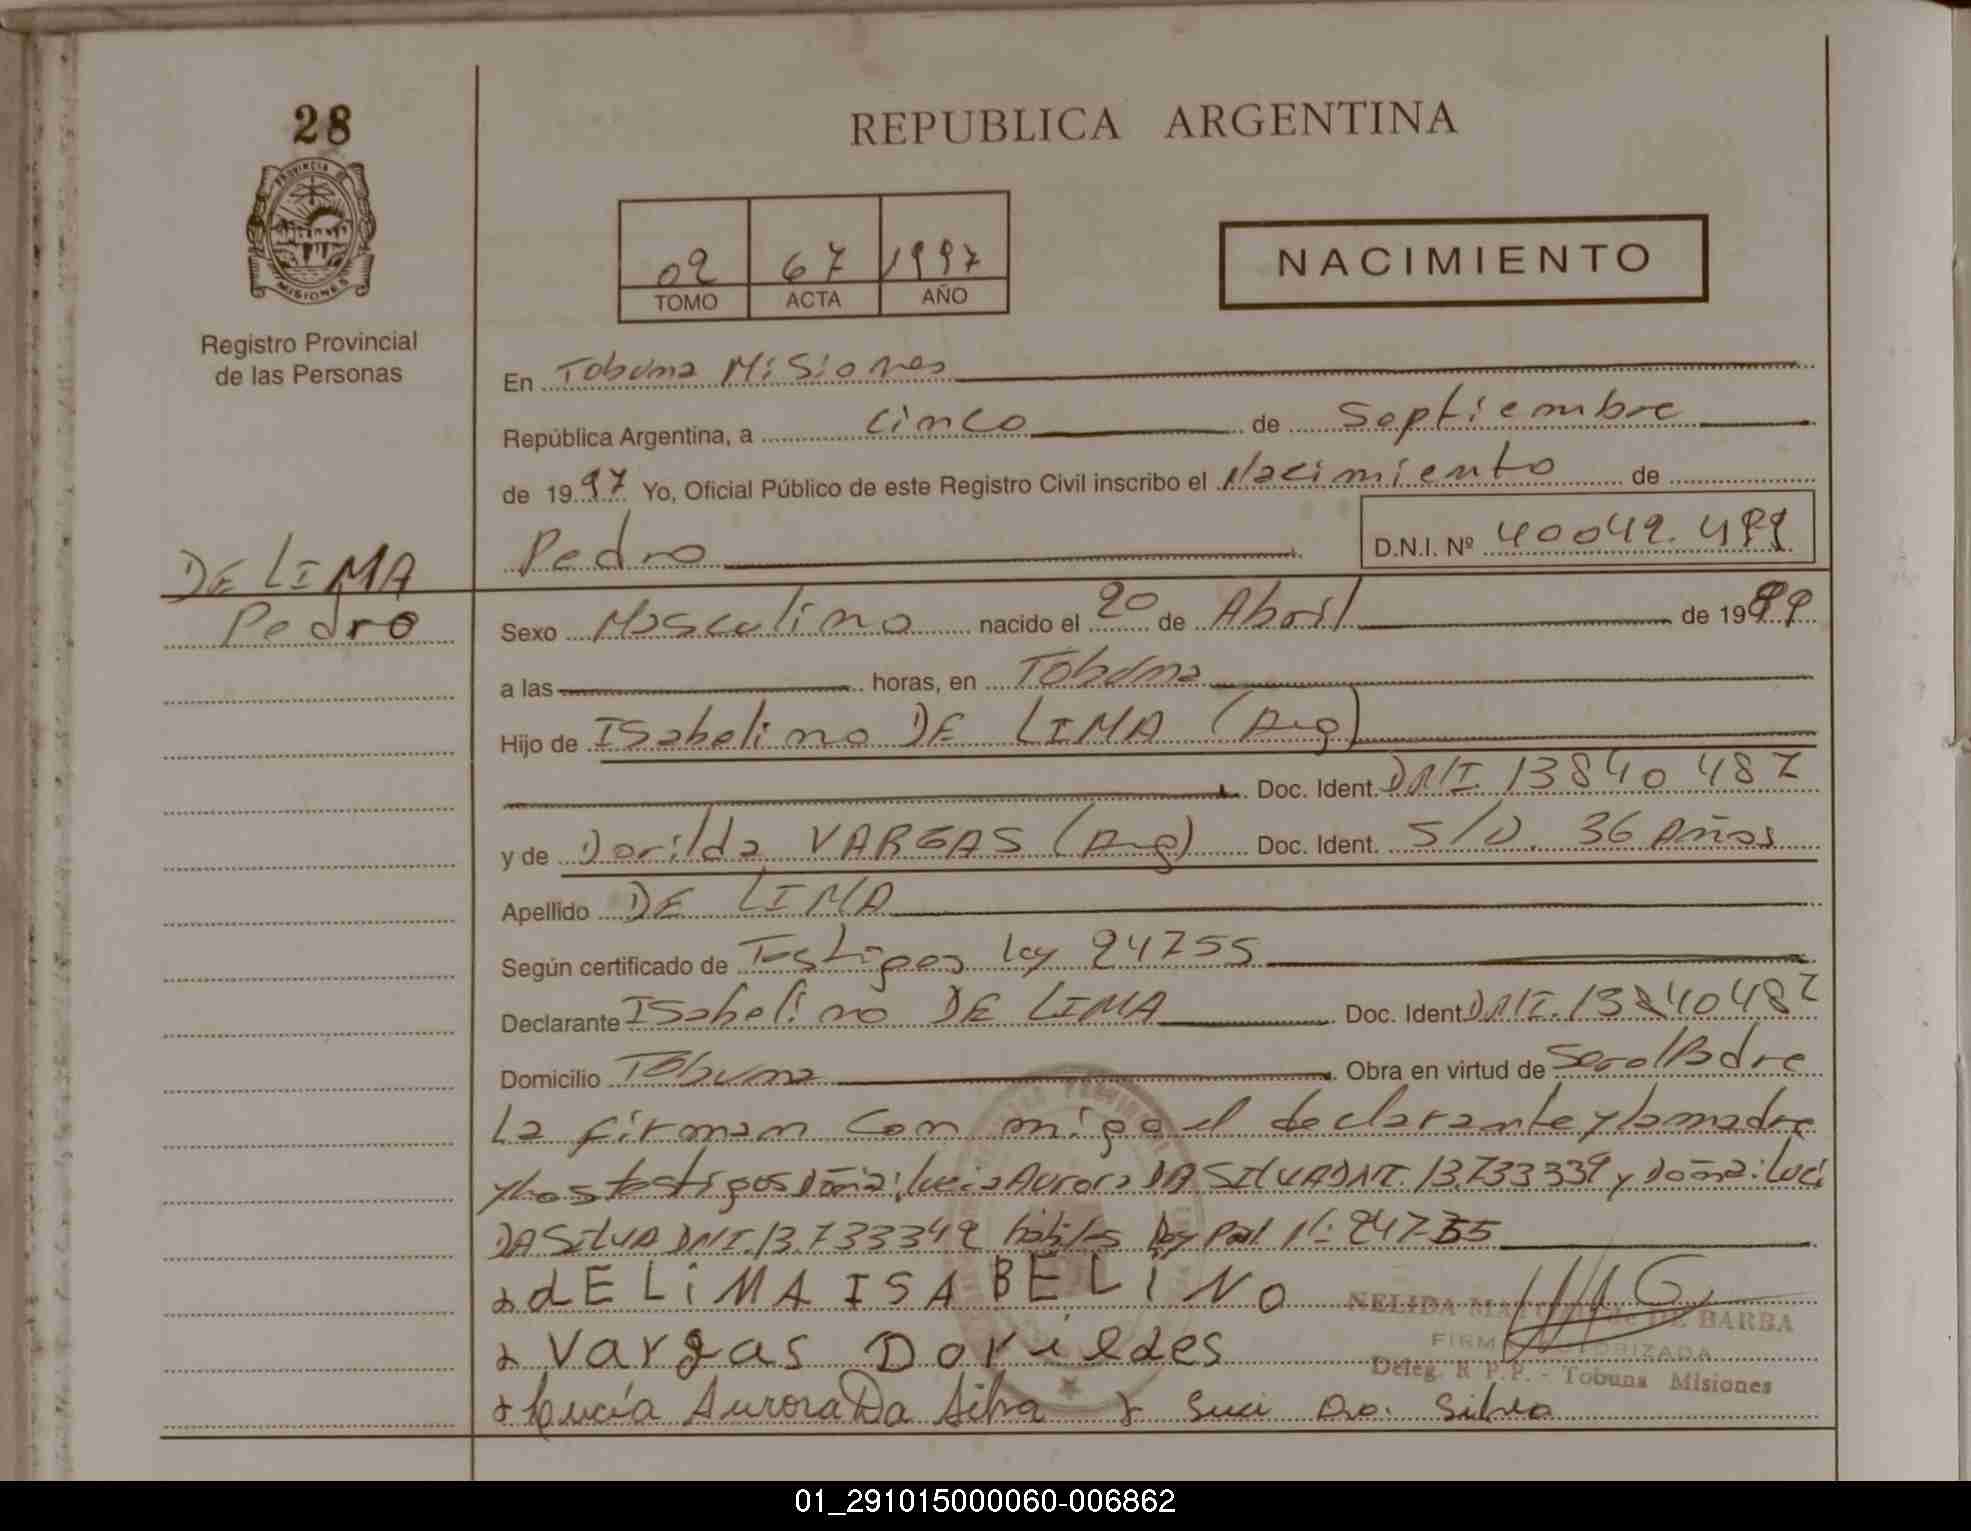 28
REPUBLICA ARGENTINA
PROVINCIA DE
MISIONES
02 67 1997
TOMO ACTA AÑO
NACIMIENTO
Registro Provincial
de las Personas
En Tobuna Misiones
República Argentina, a cinco de Septiembre
de 1997 Yo, Oficial Público de este Registro Civil inscribo el Nacimiento de
Pedro D.N.I. Nº 40042.499
DE LIMA
Pedro
Sexo Masculino nacido el 20 de Abril de 19
a las horas, en Tobuna
Hijo de ISabelino DE LIMA (Arg)
Doc. Ident. DNI. 13840487
y de Dorilda VARGAS (Arg) Doc. Ident. S/D. 36 Años
Apellido DE LIMA
Según certificado de Testigos ley 24755
Declarante ISabelino DE LIMA Doc. Ident DNI. 13840487
Domicilio Tobuna Obra en virtud de Ser el Padre
La firman con migo el declarante y la madre
y Los testigos Doña: Lucia Aurora DA SILVA DNI. 13.733339 y Doña: Luci
DA SILVA DNI. 13.733349 hábiles Ley Nº: 24755
dE LiMA ISABELiNO
Vargas Dorildes
Lucía Aurora Da Silva Suci Da. Silva
NELIDA de DE BARBA
FIRMA AUTORIZADA
Deleg. R.P.P. - Tobuna Misiones
01_291015000060-006862